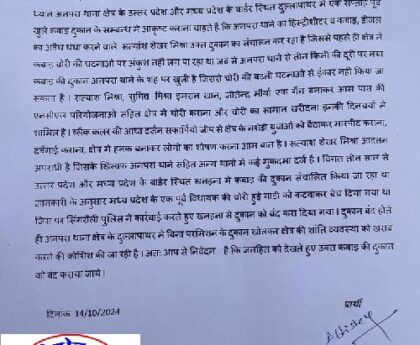 ध्यान अनपरा थाना क्षेत्र के उत्तर प्रदेश और मध्य प्रदेश के बार्डर स्थित दुल्लापाथर में एक सप्ताह पूर्व
खुले कबाड़ दुकान के सम्बन्ध में आकृष्ट कराना चाहते है कि अनपरा थाने का हिस्ट्रीशीटर व कबाड़, डीजल
का अवैध धन्धा करने वाले सत्याश शेखर मिश्रा उक्त दुकान का संचालन कर रहा है जिससे पहले ही क्षेत्र में
कबाड़ चोरी की घटनाओं पर अंकुश नहीं लग पा रहा था जब से अनपरा थाने से तीन किमी की दूरी पर नया
कबाड़ की दुकान अनपरा थाने के पह पर खुली है जिससे चोरी की बढती घटनाओं से इंकार नहीं किया जा
सकता है। सत्याश मिश्रा, सुमित मिश्रा इमरान खान, जीतेन्द्र मौर्या एक गैंग बनाकर आस पास की
एनसीएल परियोजनाओं सहित क्षेत्र में चोरी कराना और चोरी का सामान खरीदना इनकी दिनचर्या में
शामिल है। ब्लैक कलर की आधा दर्जन स्कार्पियो जीप से क्षेत्र के नशेड़ी युवाओं को बैठाकर मारपीट कराना,
दबंगई कराना, क्षेत्र में हनक बनाकर लोगों का शोषण कराना आम बात है। सत्याश शेखर मिश्रा आदतन
अपराधी है जिसके खिलाफ अनपरा थाने सहित अन्य थानों में कई मुकदमा दर्ज है। विगत तीन साल से
उत्तर प्रदेश और मध्य प्रदेश के बार्डर स्थित खनहना में कबाड़ की दुकान संचालित किया जा रहा था
जानकारी के अनुसार मध्य प्रदेश के एक पूर्व विधायक की चोरी हुई गाडी को कटवाकर बेच दिया गया था
जिस पर सिंगरौली पुलिस ने कार्रवाई करते हुए खनहना में दुकान को बंद करा दिया गया। दुकान बंद होते
ही अनपरा थाना क्षेत्र के दुल्लापाथर में बिना परमिशन के दुकान खोलकर क्षेत्र की शांति व्यवस्था को खराब
करने की कोशिश की जा रही है। अतः आप से निवेदन है कि जनहित को देखते हुए उक्त कबाड़ की दुकान
को बंद कराया जाये।
प्रार्थी
दिनांक 14/10/2024